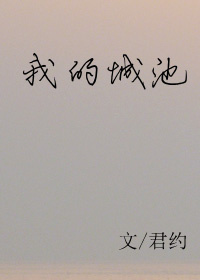 我的城池
文/君约